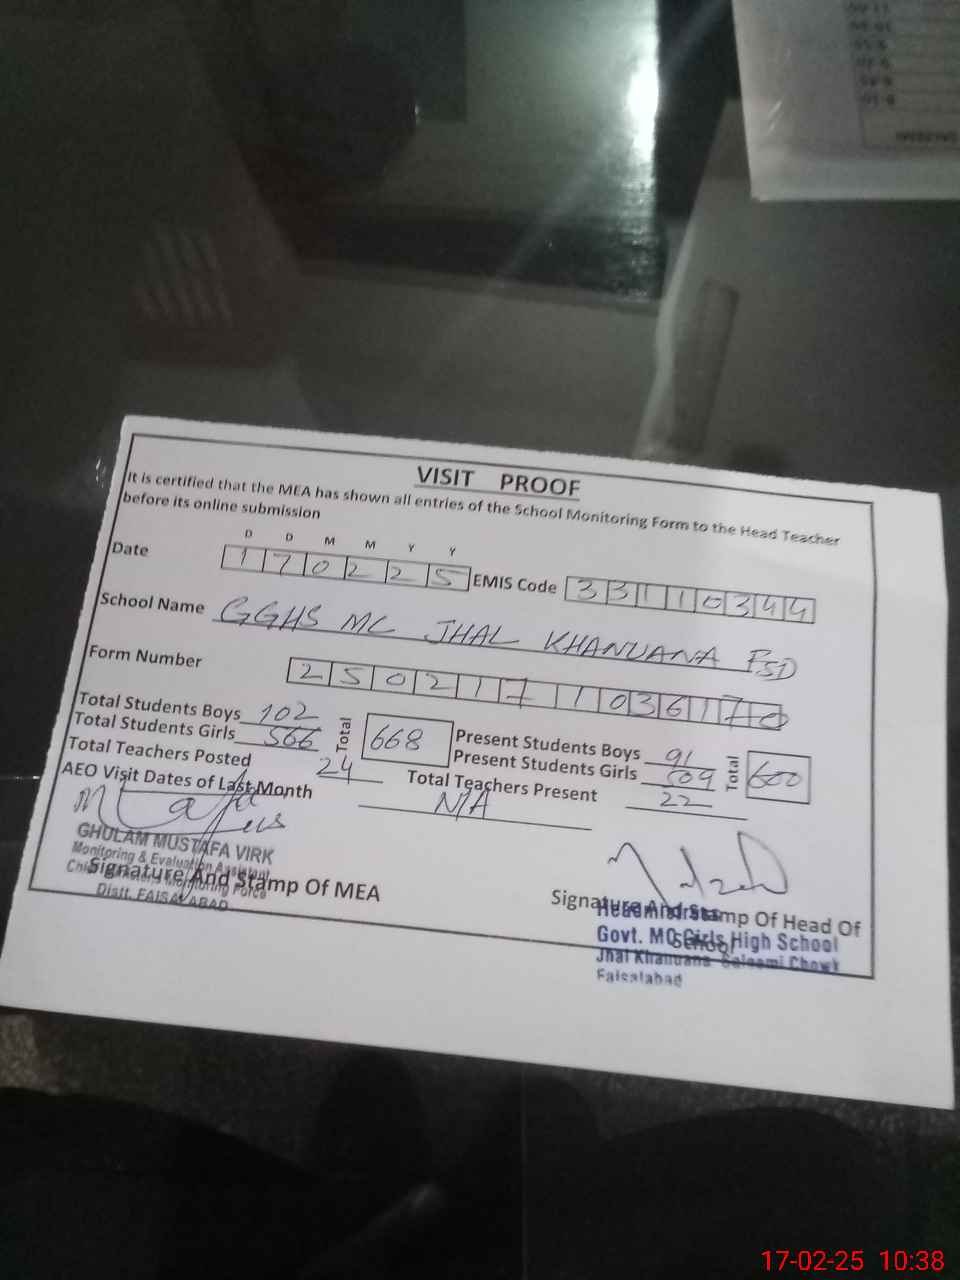 VISIT PROOF
It is certified that the MEA has shown all entries of the School Monitoring Form to the Head Teacher
before its online submission
D D M M Y Y
Date 170225 EMIS Code 33110344
School Name GGHS MC JHAL KHANUANA FSD
Form Number 250217103617
Total Students Boys 102 Total 668 Present Students Boys 91 Total 600
Total Students Girls 566 Present Students Girls 509
Total Teachers Posted 24 Total Teachers Present 22
AEO Visit Dates of Last Month N/A
GHULAM MUSTAFA VIRK
Monitoring & Evaluation Assistant
Chief Minister's Monitoring Force
Distt. FAISALABAD
Signature And Stamp Of MEA
Signature And Stamp Of Head Of
School
Headmistress
Govt. MC Girls High School
Jhal Khanuana Saleemi Chowk
Faisalabad
17-02-25 10:38